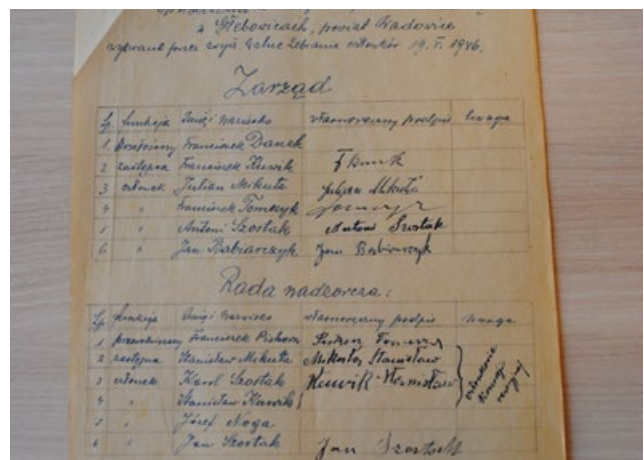 w Głębowicach, powiat Wadowice
wybrani przez zwycz. walne zebranie członków 19. V. 1946.
Zarząd
Lp. funkcja Imię i nazwisko własnoręczny podpis Uwaga
1. Franciszek Danek
2 zastępca Franciszek Kuwik
3 członek Julian Mikuła Julian Mikuła
4 " Franciszek Tomczyk
5 " Antoni Szostak Antoni Szostak
6 " Jan Babiarczyk Jan Babiarczyk
Rada nadzorcza:
Lp. funkcja Imię i nazwisko własnoręczny podpis Uwaga
1 Franciszek
2 zastępca Stanisław Mikuła Mikuła Stanisław
3 członek Karol Szostak Kuwik Stanisław
4 " Stanisław Kuwik
5 " Józef Noga
6 " Jan Szostak Jan Szostak
członkowie Komisji rewizyjnej